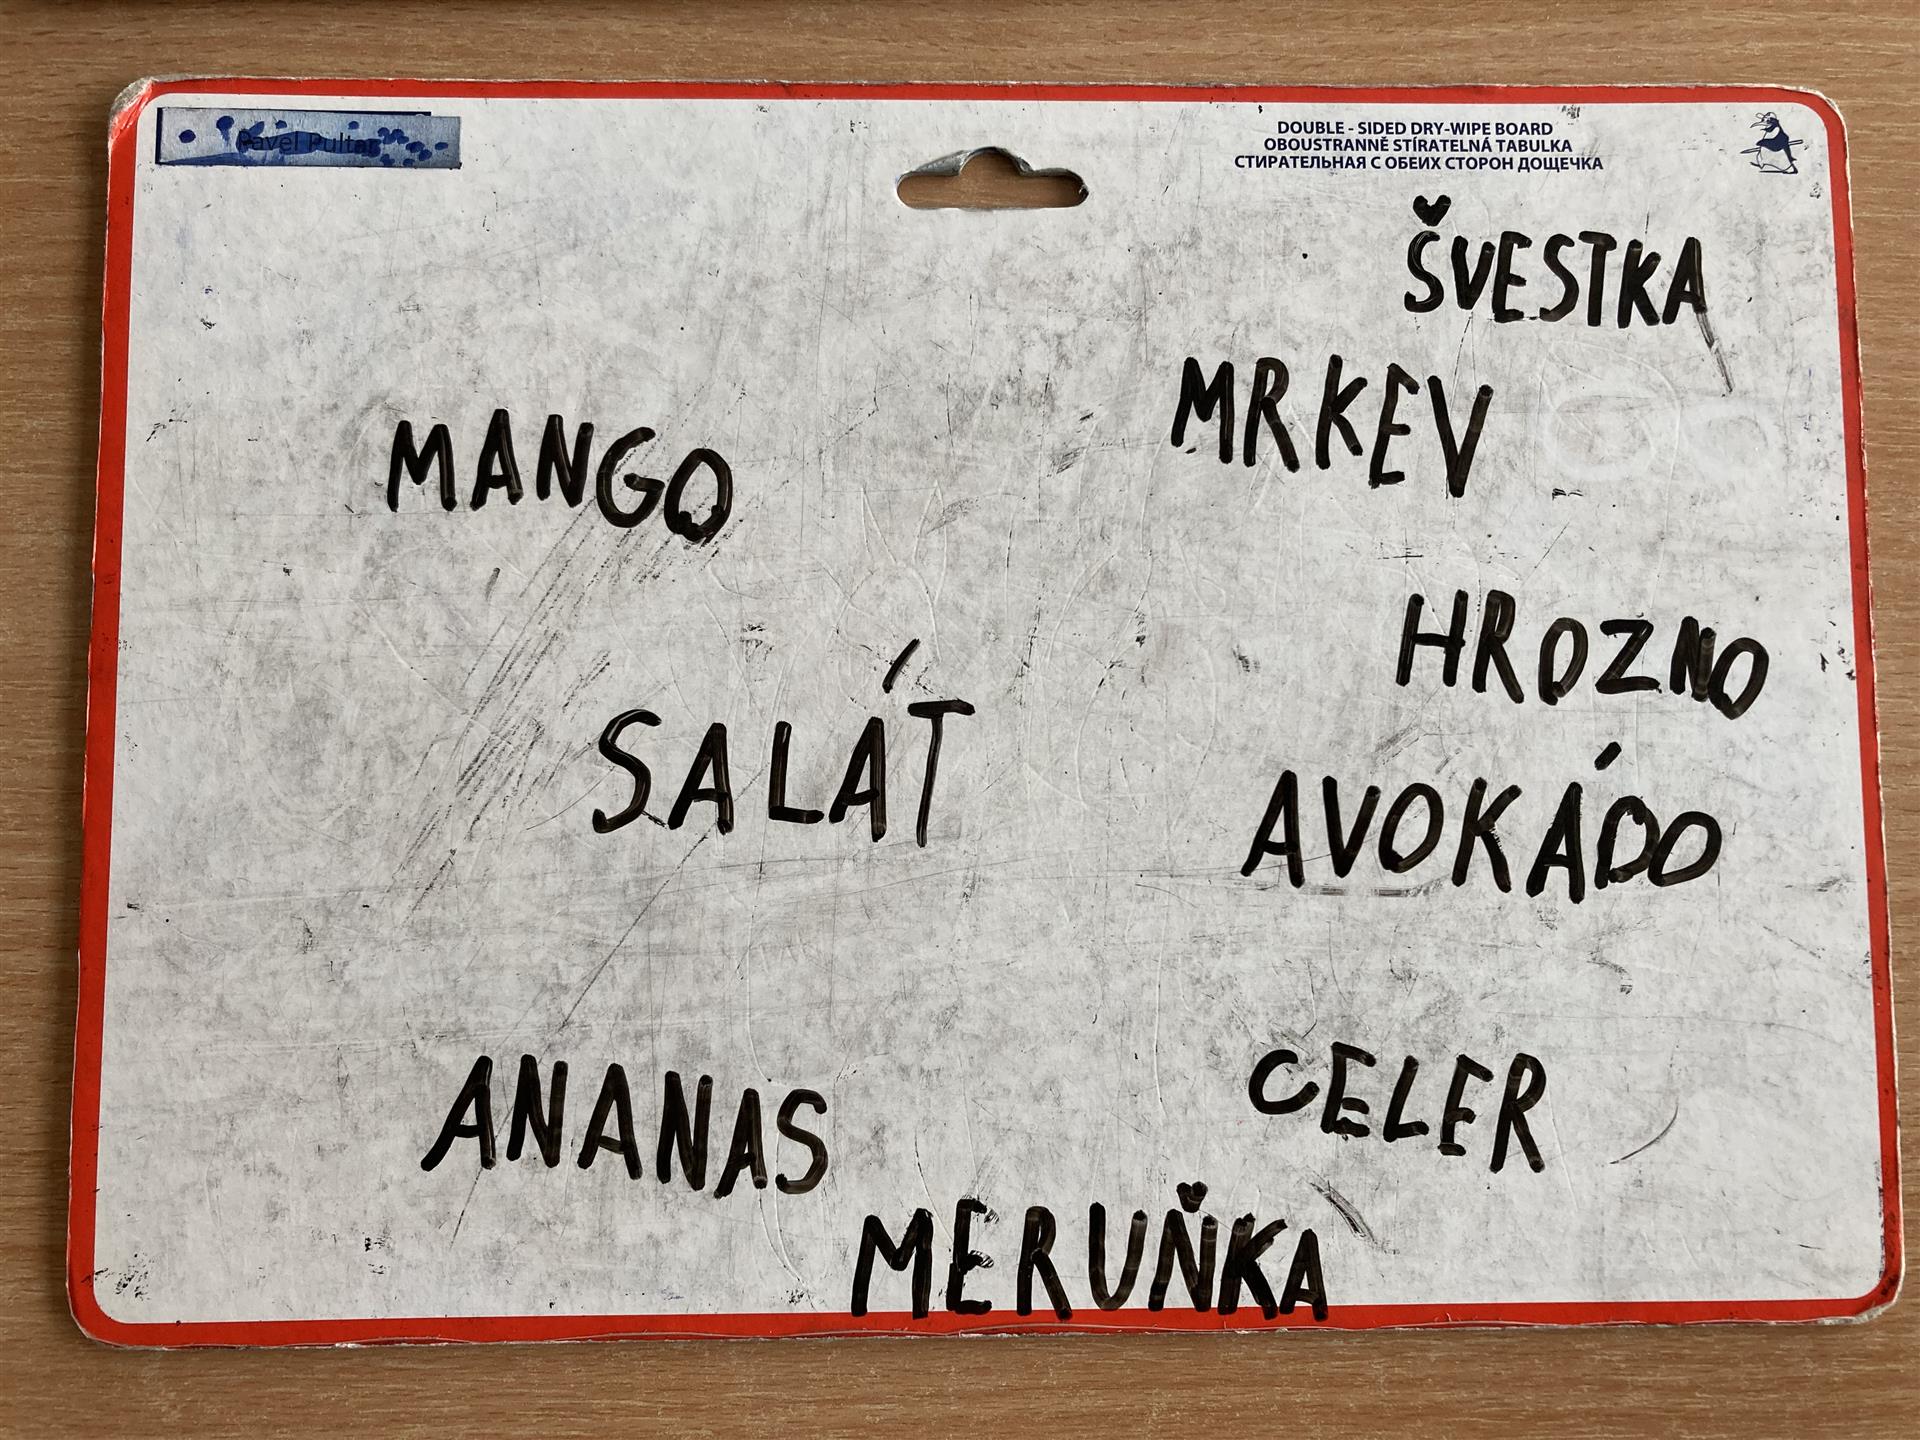 Pavel Pultar
DOUBLE - SIDED DRY-WIPE BOARD
OBOUSTRANNĚ STÍRATELNÁ TABULKA
СТИРАТЕЛЬНАЯ С ОБЕИХ СТОРОН ДОЩЕЧКА
ŠVESTKA
MRKEV
MANGO
HROZNO
SALÁT
AVOKÁDO
CELER
ANANAS
MERUŇKA